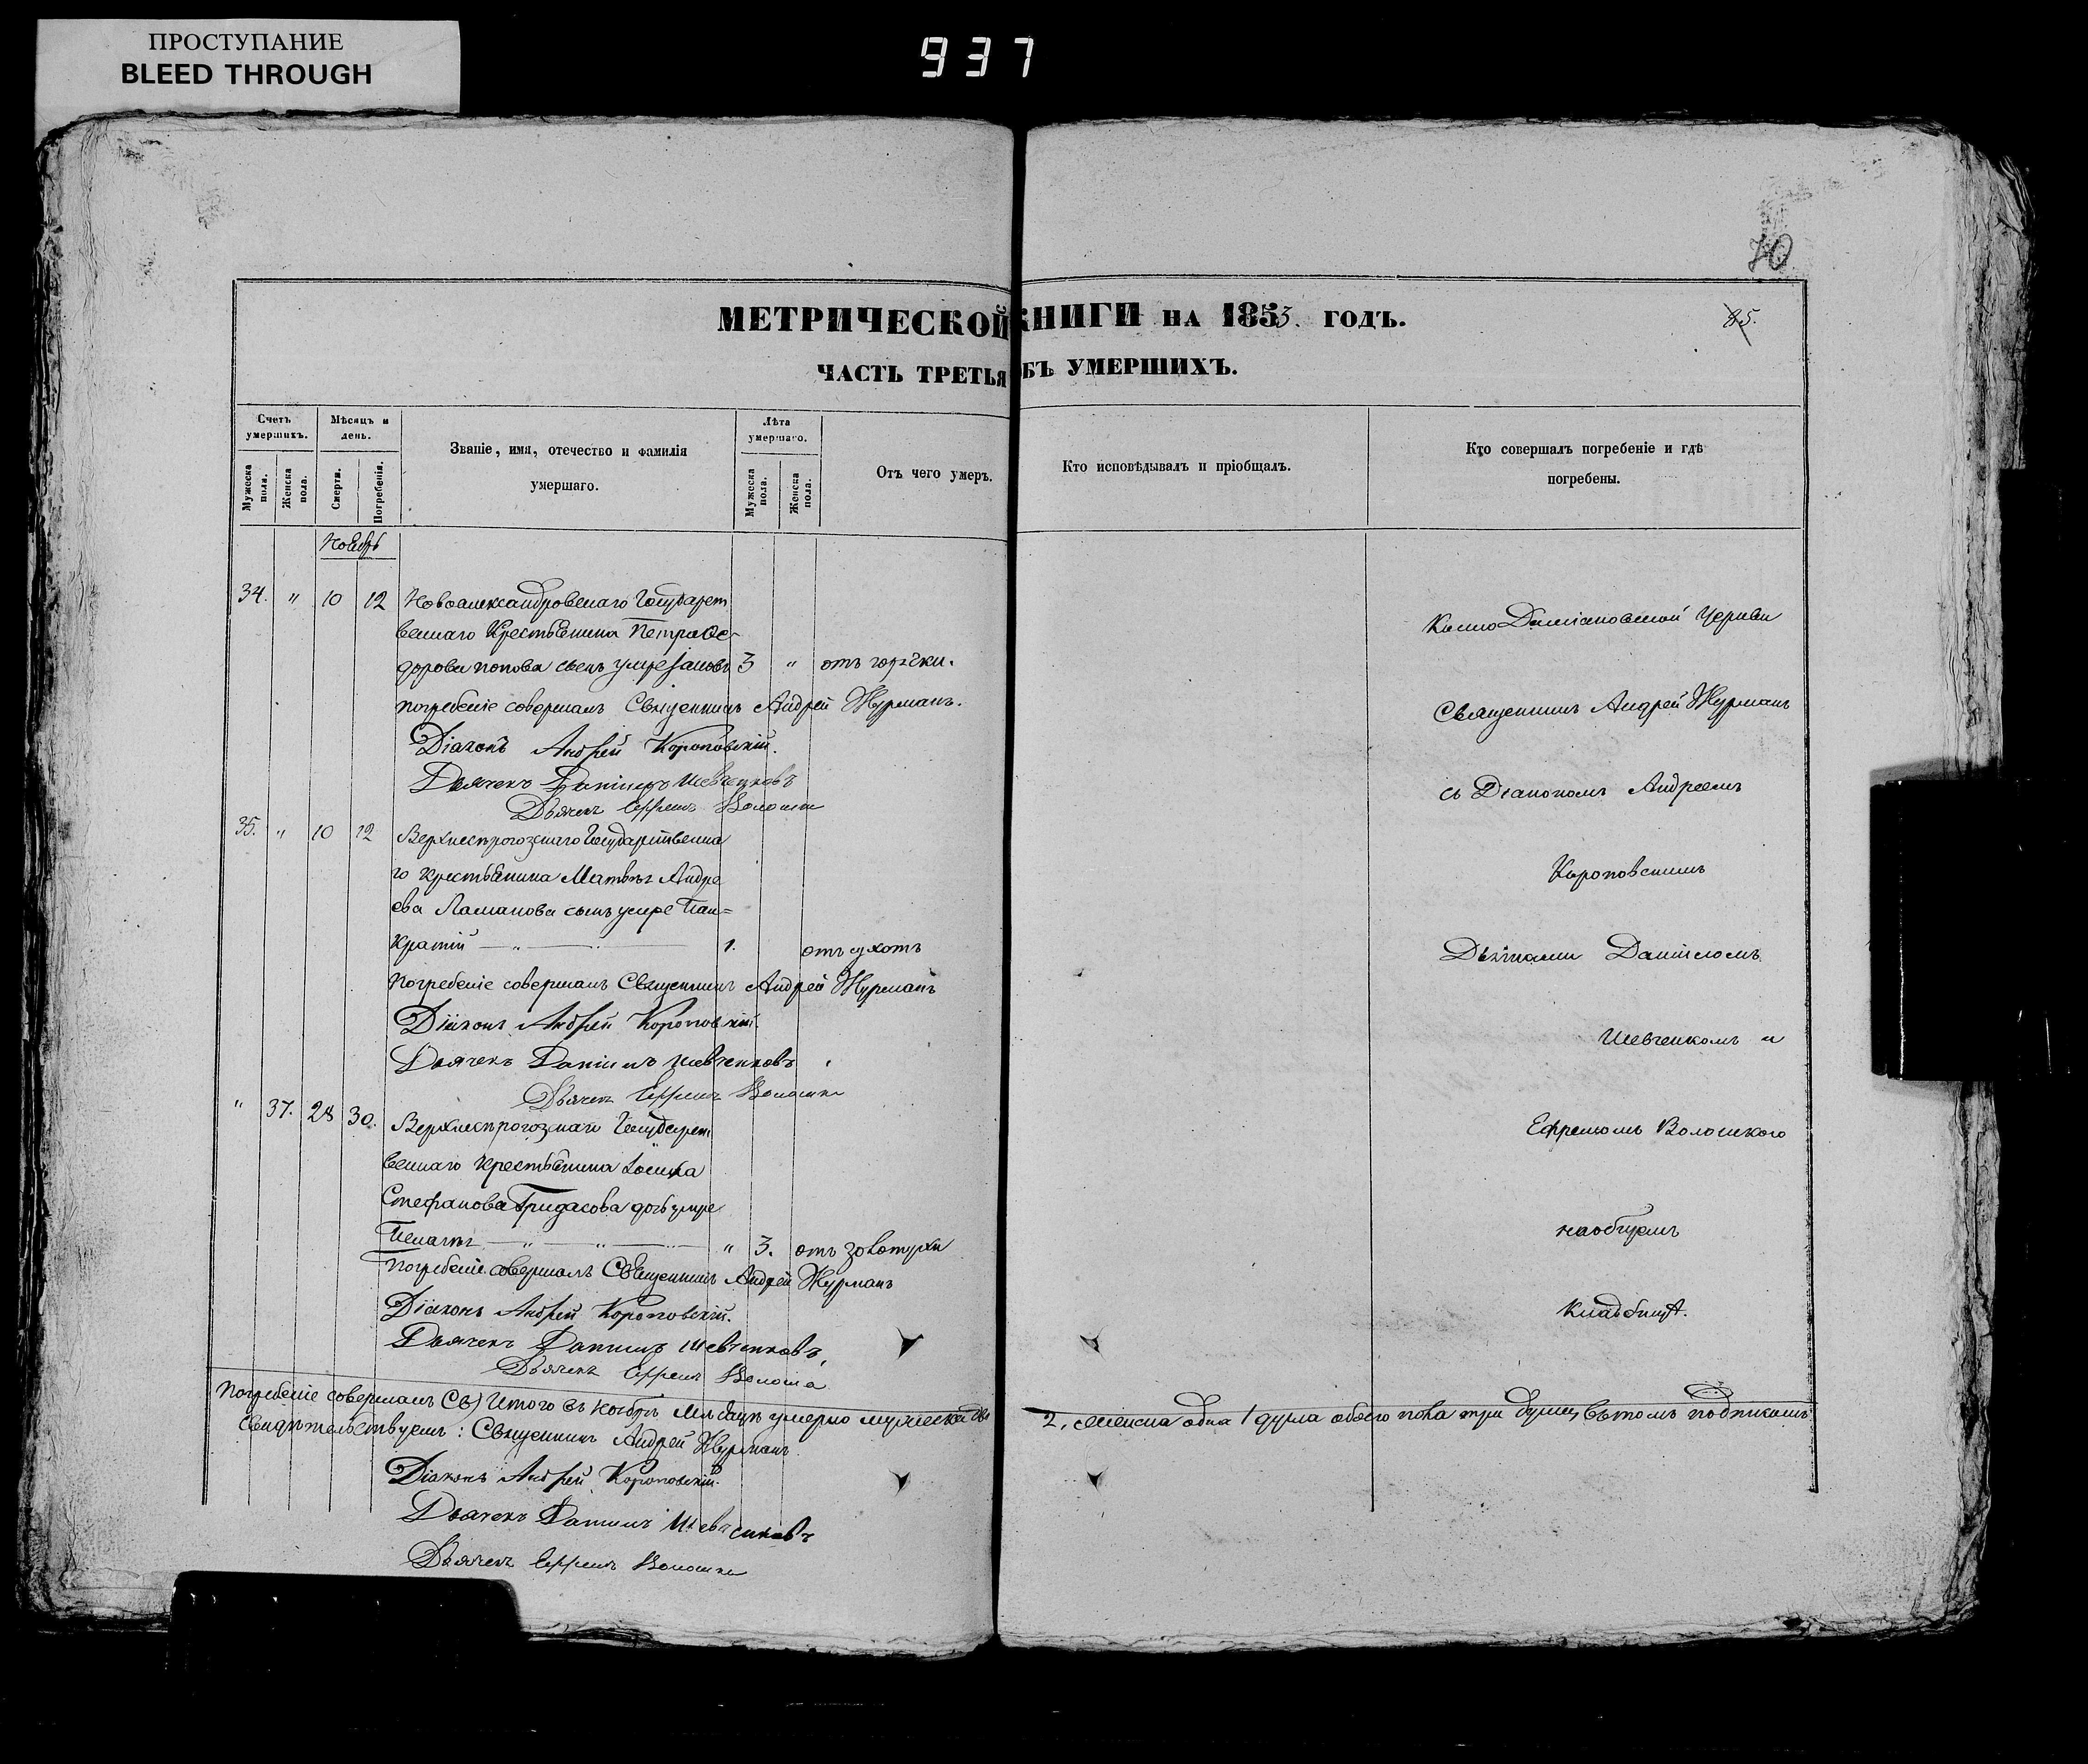 ПРОСТУПАНИЕ
BLEED THROUGH
937
70
МЕТРИЧЕСКОЙ КНИГИ НА 1853. ГОДЪ.
85.
ЧАСТЬ ТРЕТЬЯ ОБЪ УМЕРШИХЪ.
Счетъ умершихъ.
Мужеска пола.
Женска пола.
Мѣсяцъ и день.
Смерти.
Погребенія.
Званіе, имя, отечество и фамилія
умершаго.
Лѣта умершаго.
Мужеска пола.
Женска пола.
Отъ чего умеръ.
Кто исповѣдывалъ и пріобщалъ.
Кто совершалъ погребеніе и гдѣ
погребены.
Ноябрь
34. " 10 12 Новоалександровскаго Государст
веннаго Крестьянина Петра Ѳе-
дорова Попова сынъ умре 3 " отъ горячки.
погребеніе совершалъ Священникъ Андрей Журманъ.
Діаконъ Андрей Короповскій.
Дьячекъ Даніилъ Шевченковъ
Дьячекъ Ефремъ Волошко
35. " 10 12 Верхнерогозскаго Государственна
го Крестьянина Матвѣя Андре
ева Ламанова сынъ умре Пан=
кратій 1. отъ сухотъ
Погребеніе совершалъ Священникъ Андрей Журманъ
Діаконъ Андрей Короповскій.
Дьячекъ Даніилъ Шевченковъ
Дьячекъ Ефремъ Волошко
" 37. 28 30. Верхнерогозскаго Государст
веннаго Крестьянина
Стефанова Гридасова дочь умре
Пелагія " 3. отъ золотухи
Погребеніе совершалъ Священникъ Андрей Журманъ
Діаконъ Андрей Короповскій.
Дьячекъ Даніилъ Шевченковъ
Дьячекъ Ефремъ Волошко
Космо Даміановской Церкви
Священникъ Андрей Журманъ
съ Діакономъ Андреемъ
Короповскимъ
Дьячками Даніиломъ
Шевченкомъ и
Ефремомъ Волошкою
на общемъ
Кладбищѣ.
Погребеніе совершалъ Св) Итого въ Ноябрѣ Мѣсяцѣ умерло мужеска два 2, женска одна 1 душа обоего пола три души, въ томъ подпискою
Свидѣтельствуемъ: Священникъ Андрей Журманъ
Діаконъ Андрей Короповскій.
Дьячекъ Даніилъ Шевченковъ
Дьячекъ Ефремъ Волошко